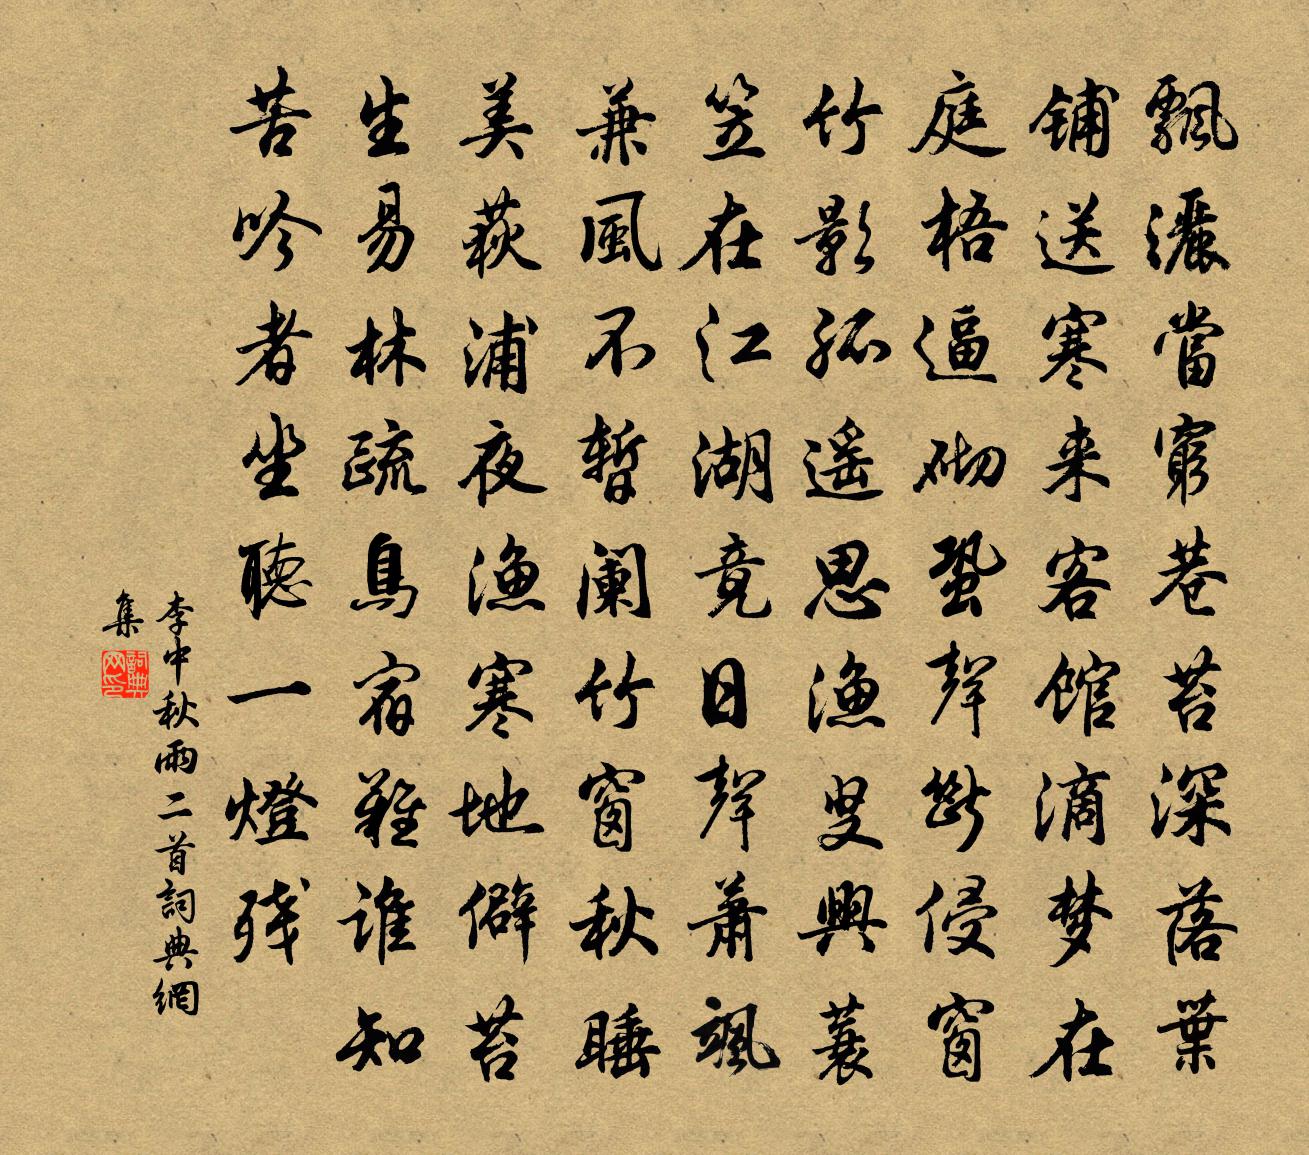 飄灑當窮巷苔深落葉
鋪送寒来客館滴梦在
庭梧逼砌蛩聲斷侵窗
竹影孤遥思漁叟興蓑
笠在江湖竟日聲蕭颯
兼風不暫阑竹窗秋睡
美荻浦夜漁寒地僻苔
生易林疏鳥宿難誰知
苦吟者坐聽一燈残
李中秋雨二首詞典網
集
詞典网印